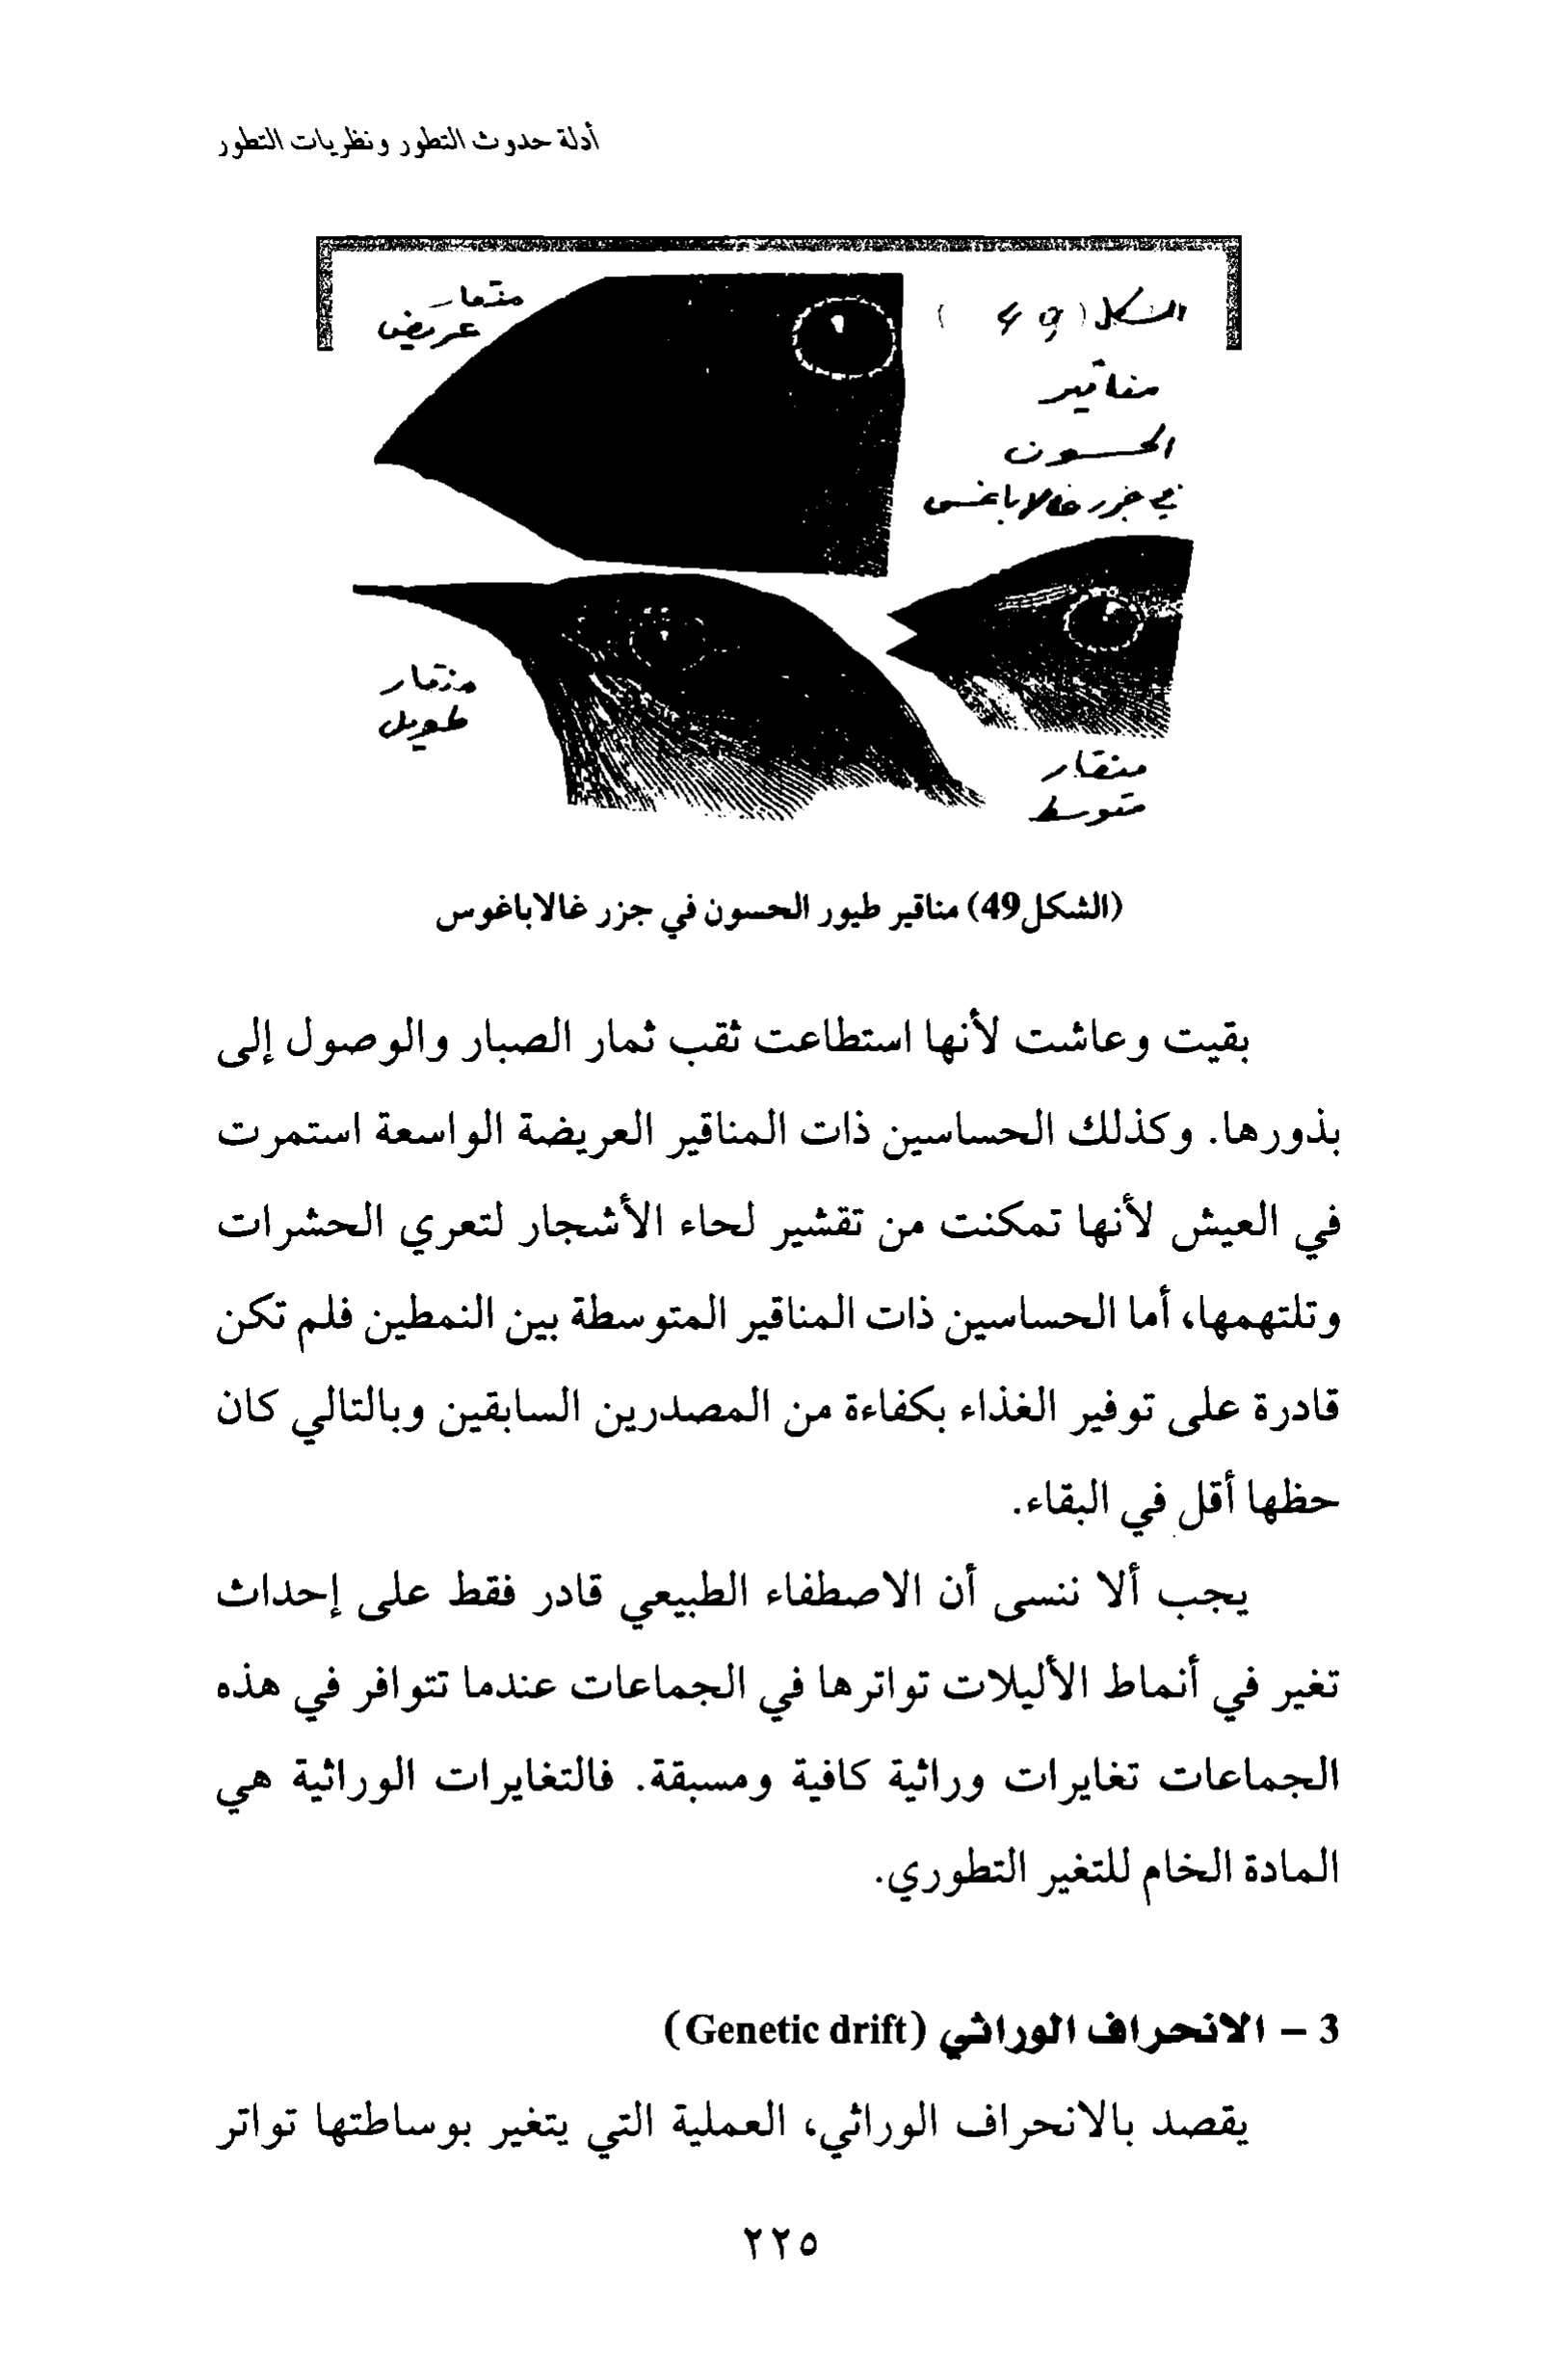 أدلة حدوث التطور ونظريات التطور
منقار
عريض
الشكل (49)
مناقير
الحسون
في جزر غالاباغس
منقار
طويل
منقار
متوسط
(الشكل49) مناقير طيور الحسون في جزر غالاباغوس
بقيت وعاشت لأنها استطاعت ثقب ثمار الصبار والوصول إلى
بذورها. وكذلك الحساسين ذات المناقير العريضة الواسعة استمرت
في العيش لأنها تمكنت من تقشير لحاء الأشجار لتعري الحشرات
وتلتهمها، أما الحساسين ذات المناقير المتوسطة بين النمطين فلم تكن
قادرة على توفير الغذاء بكفاءة من المصدرين السابقين وبالتالي كان
حظها أقل في البقاء.
يجب ألا ننسى أن الاصطفاء الطبيعي قادر فقط على إحداث
تغير في أنماط الأليلات تواترها في الجماعات عندما تتوافر في هذه
الجماعات تغايرات وراثية كافية ومسبقة. فالتغايرات الوراثية هي
المادة الخام للتغير التطوري.
3 - الانحراف الوراثي (Genetic drift)
يقصد بالانحراف الوراثي، العملية التي يتغير بوساطتها تواتر
٢٢٥